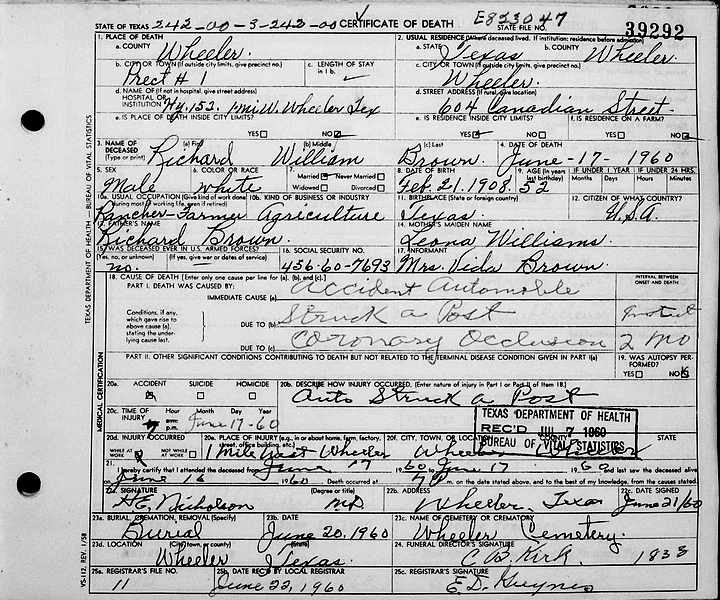 STATE OF TEXAS 242-00-3-242-00 CERTIFICATE OF DEATH STATE FILE NO. 39292
1. PLACE OF DEATH 2. USUAL RESIDENCE (Where deceased lived. If institution: residence before admission)
a. COUNTY Wheeler a. STATE Texas b. COUNTY Wheeler
b. CITY OR TOWN (If outside city limits, give precinct no.) c. LENGTH OF STAY in 1 b. c. CITY OR TOWN (If outside city limits, give precinct no.)
Prect # 1 Wheeler
d. NAME OF (If not in hospital, give street address) HOSPITAL OR INSTITUTION Hy. 152. 1 mi W. Wheeler Tex d. STREET ADDRESS (If rural, give location) 604 Canadian Street
e. IS PLACE OF DEATH INSIDE CITY LIMITS? e. IS RESIDENCE INSIDE CITY LIMITS? f. IS RESIDENCE ON A FARM?
YES NO YES NO YES NO
3. NAME OF DECEASED (Type or print) (a) First (b) Middle (c) Last 4. DATE OF DEATH
Richard William Brown June-17-1960
5. SEX 6. COLOR OR RACE 7. Married Never Married Widowed Divorced 8. DATE OF BIRTH 9. AGE (In years last birthday) IF UNDER 1 YEAR IF UNDER 24 HRS.
Months Days Hours Min.
Male White Feb. 21. 1908. 52
10a. USUAL OCCUPATION (Give kind of work done during most of working life, even if retired) 10b. KIND OF BUSINESS OR INDUSTRY 11. BIRTHPLACE (State or foreign country) 12. CITIZEN OF WHAT COUNTRY?
Rancher-Farmer Agriculture Texas. U.S.A
13. FATHER'S NAME 14. MOTHER'S MAIDEN NAME
Richard Brown. Leona Williams.
15. WAS DECEASED EVER IN U.S. ARMED FORCES? 16. SOCIAL SECURITY NO. 17. INFORMANT
(Yes, no, or unknown) (If yes, give war or dates of service)
no. 456-60-7693 Mrs. Vida Brown.
18. CAUSE OF DEATH [Enter only one cause per line for (a), (b), and (c).] INTERVAL BETWEEN ONSET AND DEATH
PART I. DEATH WAS CAUSED BY:
IMMEDIATE CAUSE (a) Accident Automobile
Conditions, if any, which gave rise to above cause (a), stating the underlying cause last.
DUE TO (b) Struck a Post
DUE TO (c) Coronary Occlusion 2 mo
PART II. OTHER SIGNIFICANT CONDITIONS CONTRIBUTING TO DEATH BUT NOT RELATED TO THE TERMINAL DISEASE CONDITION GIVEN IN PART I(a) 19. WAS AUTOPSY PERFORMED?
YES NO
20a. ACCIDENT SUICIDE HOMICIDE 20b. DESCRIBE HOW INJURY OCCURRED. (Enter nature of injury in Part I or Part II of item 18.)
Auto Struck a Post
20c. TIME OF INJURY Hour Month Day Year a.m. p.m. June 17-60
TEXAS DEPARTMENT OF HEALTH
REC'D JUL 7 1960
BUREAU OF VITAL STATISTICS
20d. INJURY OCCURRED WHILE AT WORK NOT WHILE AT WORK 20e. PLACE OF INJURY (e.g., in or about home, farm, factory, street, office building, etc.) 20f. CITY, TOWN, OR LOCATION COUNTY STATE
1 Mile West Wheeler Wheeler
21. I hereby certify that I attended the deceased from June 17 1960 to June 17 1960 and last saw the deceased alive
on June 16 1960 Death occurred at m. on the date stated above, and to the best of my knowledge, from the causes stated.
22a. SIGNATURE (Degree or title) 22b. ADDRESS 22c. DATE SIGNED
H.E. Nicholson MD Wheeler, Texas June 21/60
23a. BURIAL, CREMATION, REMOVAL (Specify) 23b. DATE 23c. NAME OF CEMETERY OR CREMATORY
Burial June 20, 1960 Wheeler Cemetery.
23d. LOCATION (City, town, or county) (State) 24. FUNERAL DIRECTOR'S SIGNATURE
Wheeler Texas. C. B. Kirk. 1838
25a. REGISTRAR'S FILE NO. 25b. DATE REC'D BY LOCAL REGISTRAR 25c. REGISTRAR'S SIGNATURE
11 June 22, 1960
TEXAS DEPARTMENT OF HEALTH — BUREAU OF VITAL STATISTICS
MEDICAL CERTIFICATION
VS-112, REV. 1/58